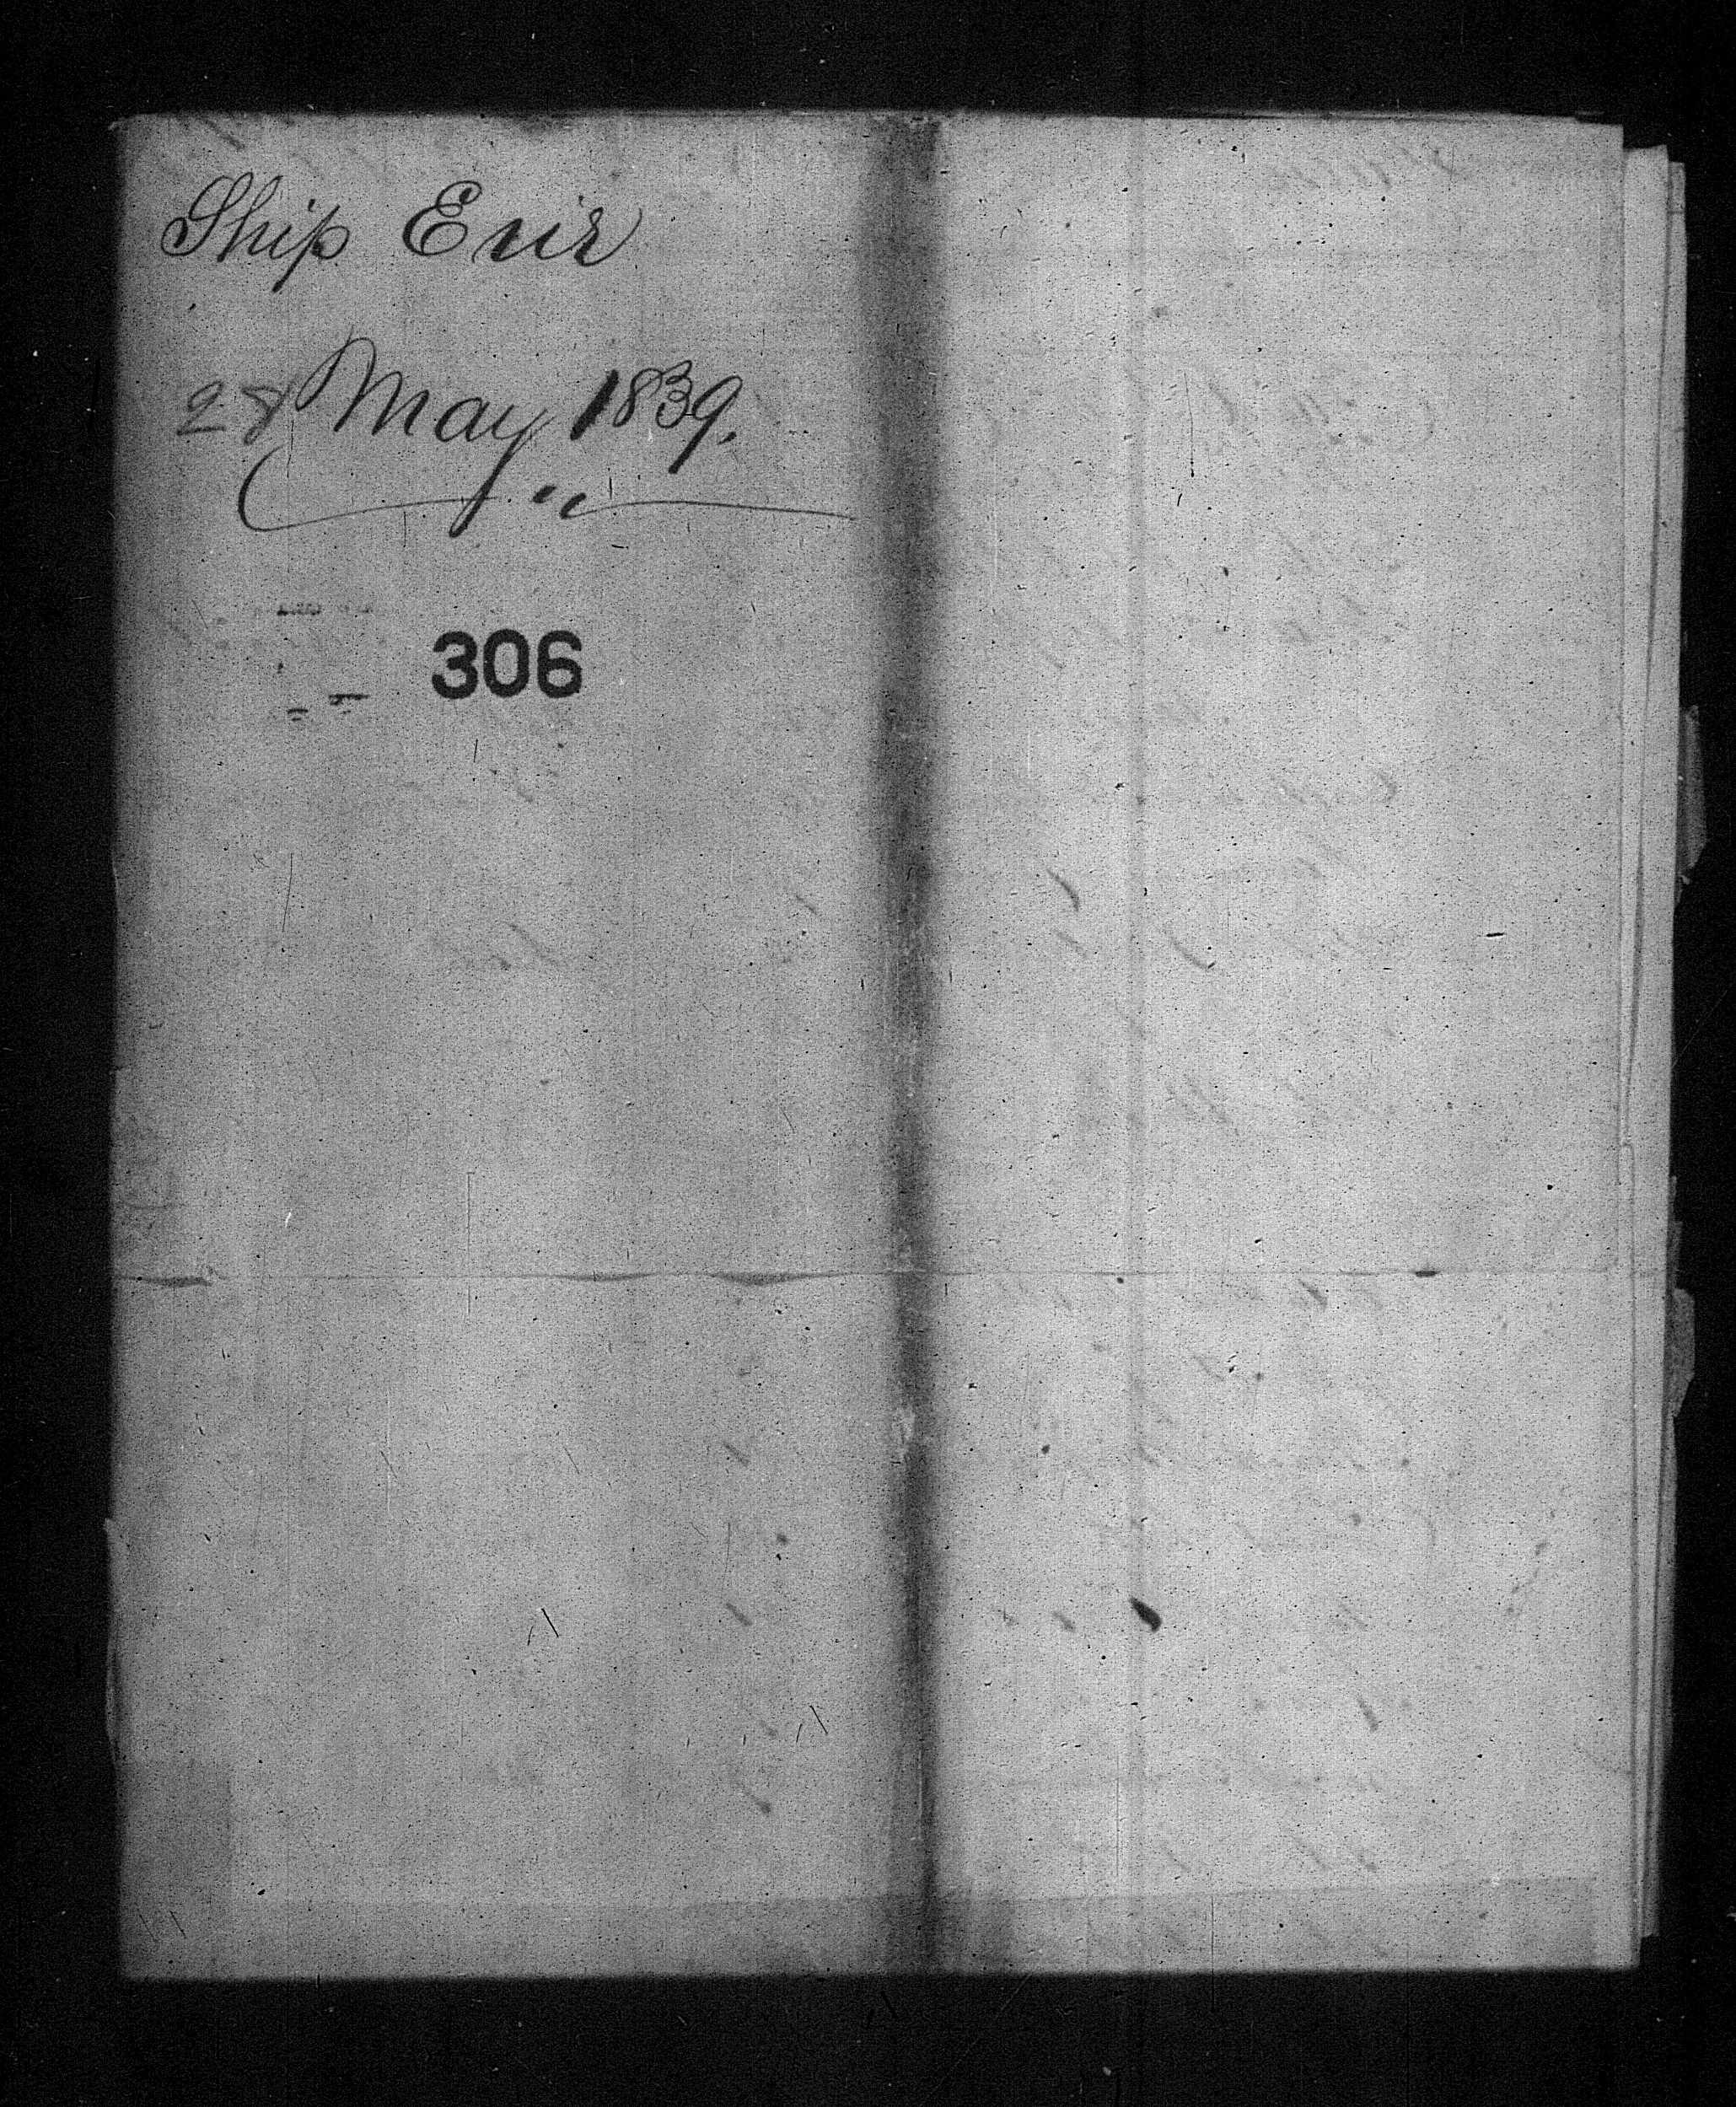 Ship Erie
28 May 1839.
306